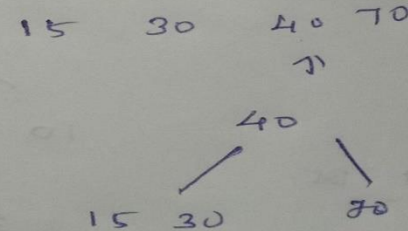 15 30 40 70
40
15 30 70